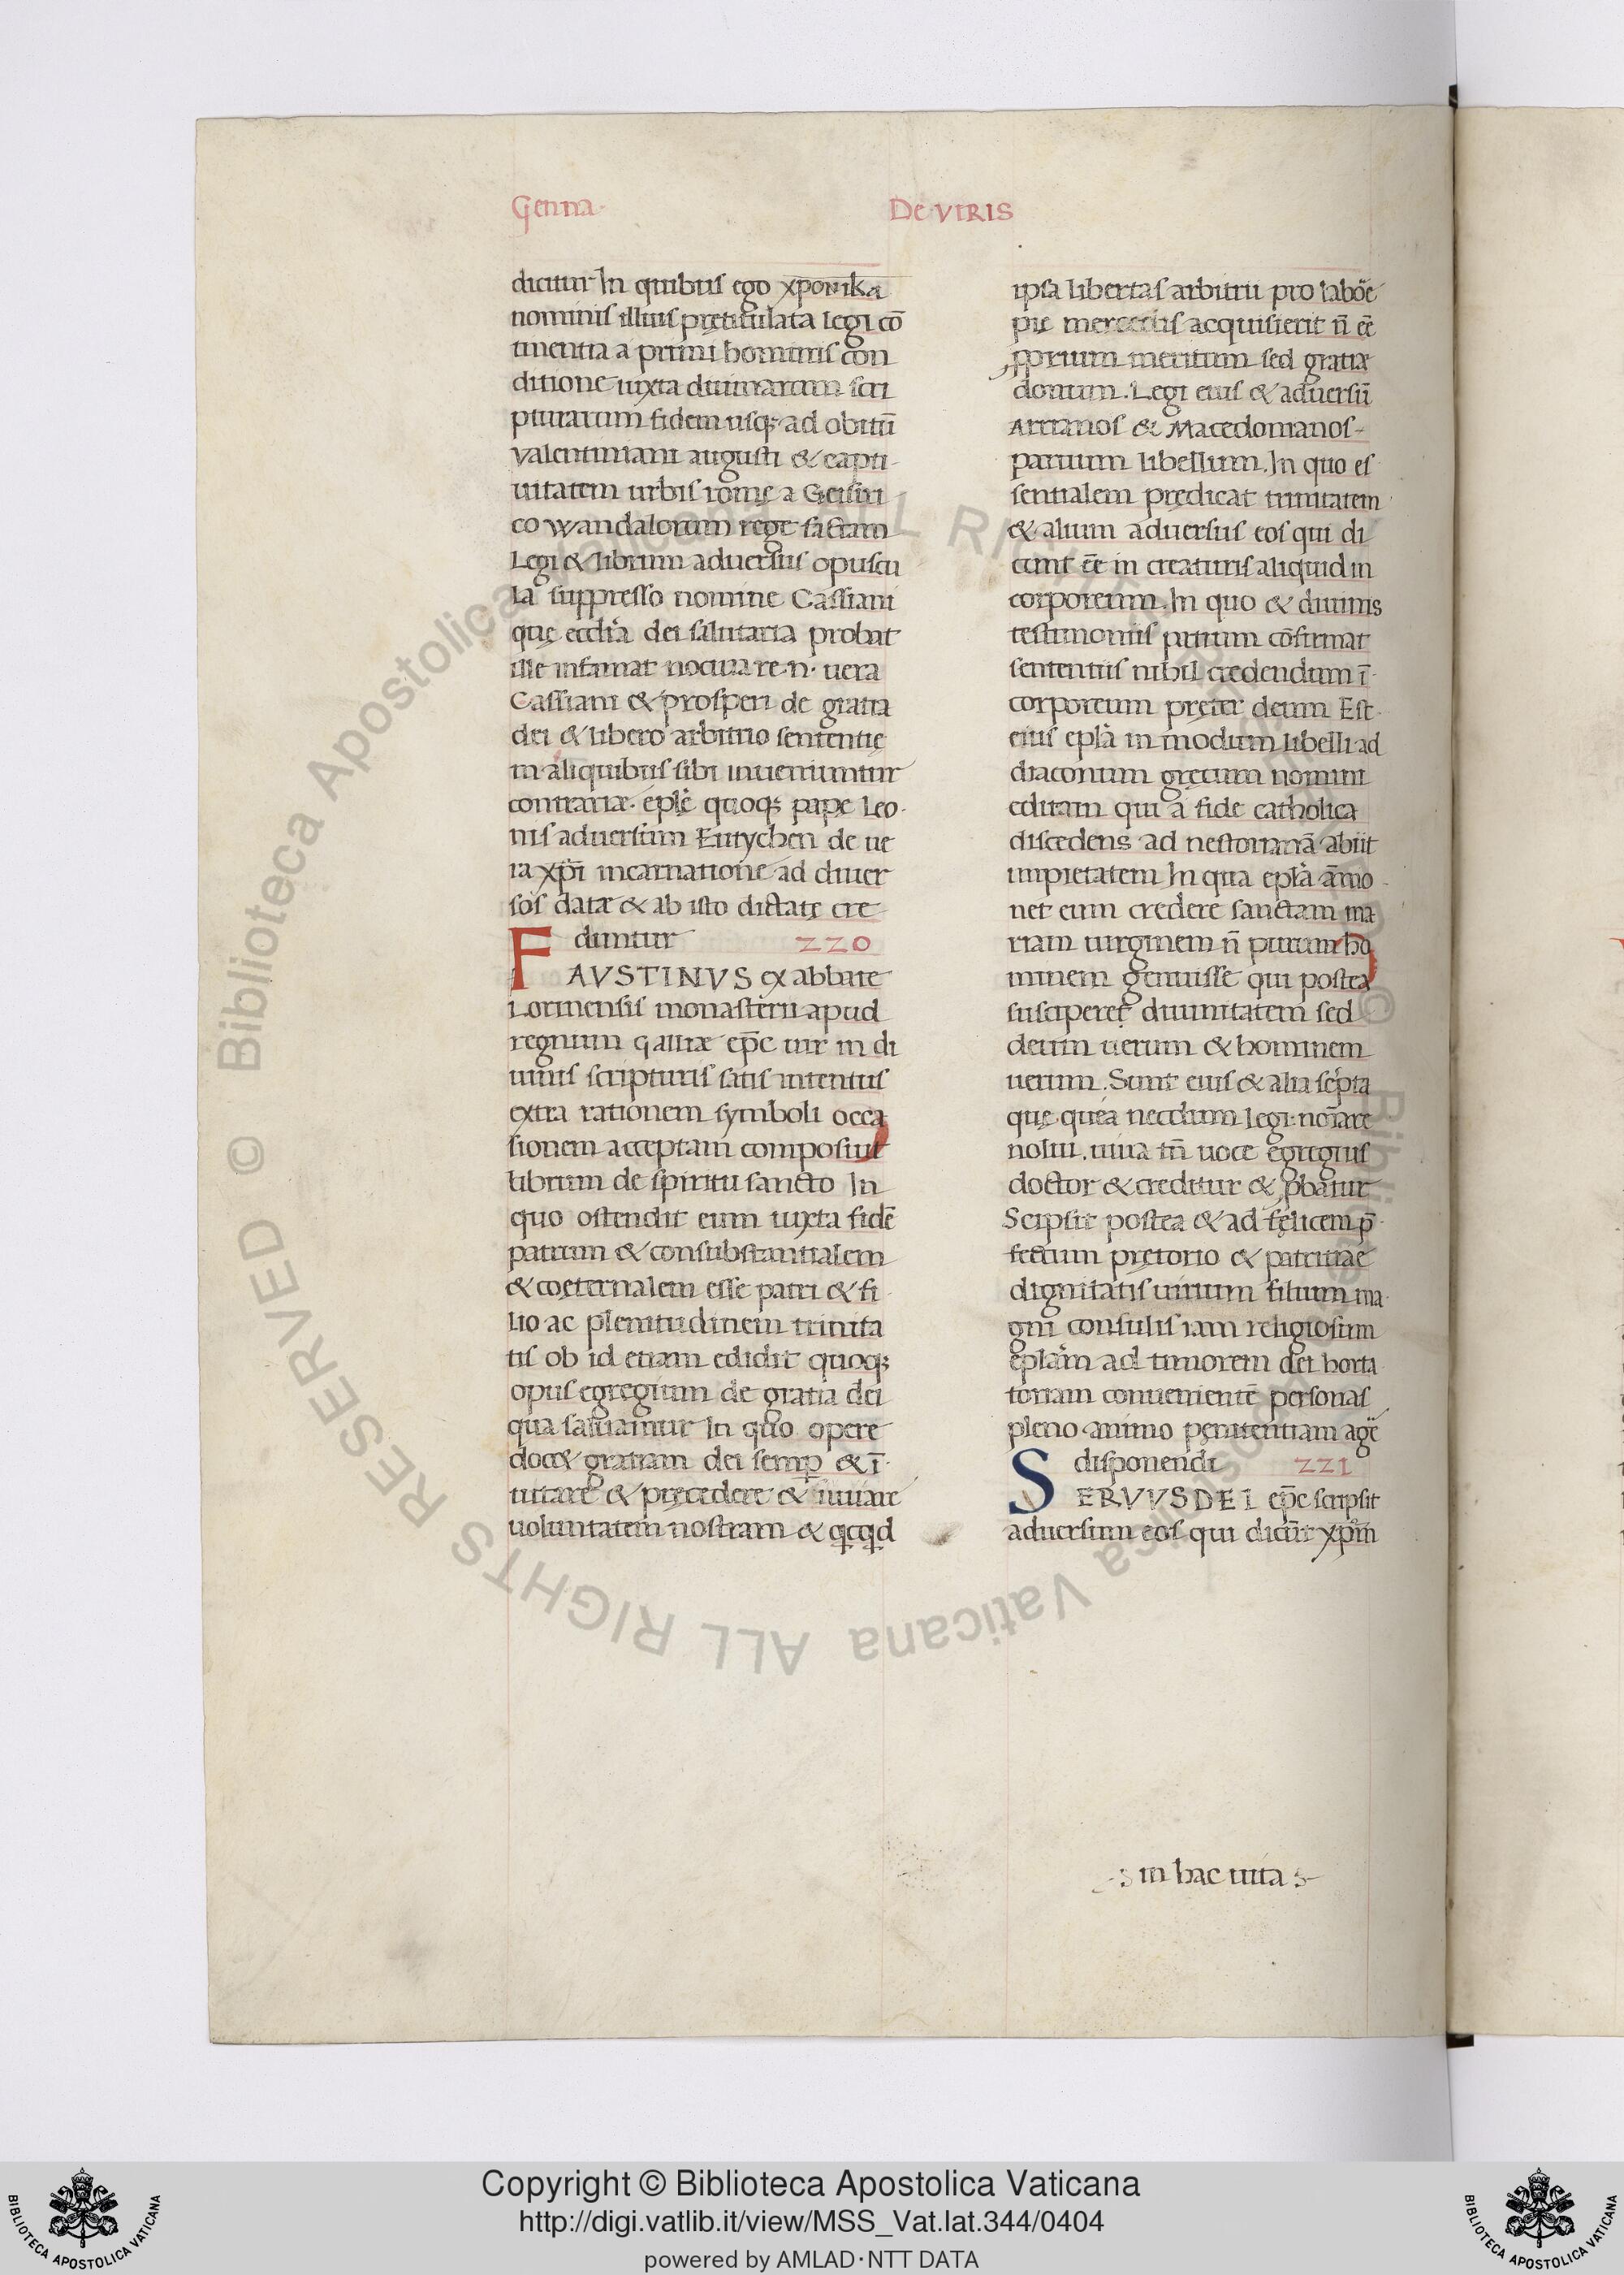 Genna·
De VIRIS
dicitur In quibus ego xponika
nominis illius pretitulata legi cō
tinentia a primi hominis con
ditione iuxta diuinarum scri
pturarum fidem usq; ad obitū
valentiniani augusti & capti-
uitatem urbis romę a Geisiri
co wandalorum rege factam
Legi & librum aduersus opuscu
la suppresso nomine Cassiani
quę ecclīa dei salutaria probat
ille infamat nociua re.n. vera
Cassiani & prosperi de gratia
dei & libero arbitrio sententię
in aliquibus sibi inueniuntur
contrariæ. eplę quoq; papę Leo-
nis aduersum Eutychen de ue
ra xpī incarnatione ad diuer
sos datæ & ab isto dictatę cre
duntur 220
FAVSTINVS ex abbate
Lorinensis monasterii apud
regnum galliæ ep̄c uir in di
uinis scripturis satis intentus
extra rationem symboli occa
sionem acceptam composiut
librum de spiritu sancto In
quo ostendit eum iuxta fidē
patrum & consubstantialem
& coęternalem esse patri & fi
lio ac plenitudinem trinita
tis ob id etiam edidit quoq;
opus egregium de gratia dei
qua saluamur In quo opere
doc& gratiam dei semp & ī
uitare & pręcedere & iuuare
uoluntatem nostram & qcqd
ipsa libertas arbitrii pro laboē
pię mercedis acquisierit n̄ eē
pprium meritum sed gratiæ
donum. Legi eius & aduersū
Arrianos & Macedonianos-
paruum libellum. In quo es
sentialem prędicat trinitatem
& alium aduersus eos qui di
cunt eē in creaturis aliquid in
corporeum. In quo & diuinis
testimoniis patrum cōfirmat
sententiis nihil credendum ī-
corporeum pręter deum Est-
eius eplā in modum libelli ad
diaconum gręcum nomini
editam qui a fide catholica
discedens ad nestorianā abiit
impietatem In qua eplā āmo
net eum credere sanctam ma
riam uirginem n̄ purum ho
minem genuisse qui postea
susciperet diuinitatem sed
deum uerum & hominem
uerum. Sunt eius & alia scpta
quę quea necdum legi noīare
nolui. uiua tn̄ uoce egregius
doctor & creditur & pbatur
Scipsit postea & ad fęlicem p̄-
fectum pretorio & patritiae
dignitatis uirum filium ma-
gni consulis iam religiosum
eplām ad timorem dei horta
toriam conuenientē personas
pleno animo penitentiam agē
disponendi 221
SERVVS DEI ep̄c scripsit
aduersum eos qui dicūt xpm̄
in hac uita
Copyright © Biblioteca Apostolica Vaticana
http://digi.vatlib.it/view/MSS_Vat.lat.344/0404
powered by AMLAD·NTT DATA
BIBLIOTECA APOSTOLICA VATICANA
BIBLIOTECA APOSTOLICA VATICANA
© Biblioteca Apostolica Vaticana ALL RIGHTS RESERVED © Biblioteca Apostolica Vaticana ALL RIGHTS RESERVED